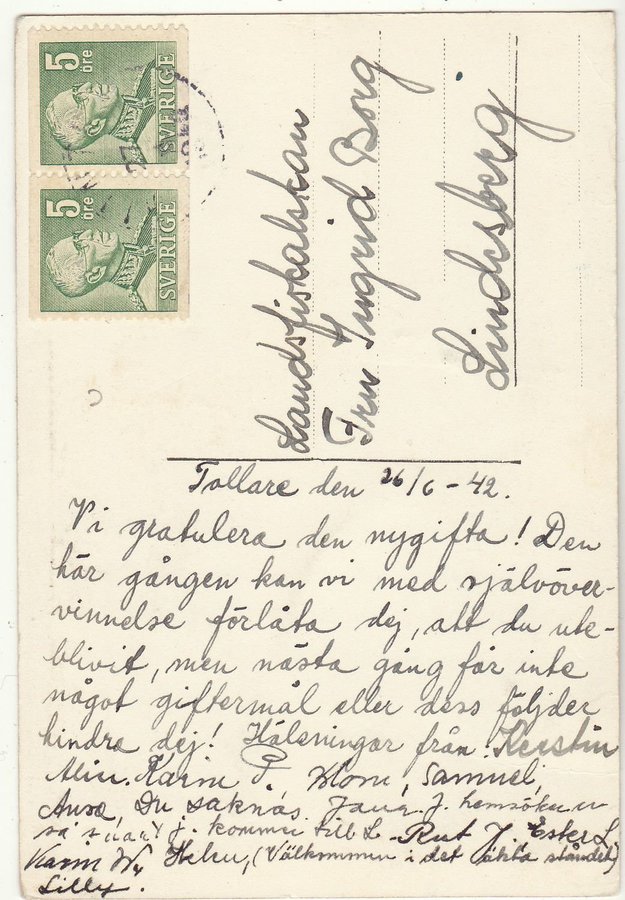 5
öre
SVERIGE
5
öre
SVERIGE
Landsfiskalskan
Fru Ingrid Borg
Lindesberg
Tollare den 26/6 - 42.
Vi gratulera den nygifta! Den
här gången kan vi med självöver-
vinnelse förlåta dej, att du ute-
blivit, men nästa gång får inte
något giftermål eller dess följder
hindra dej! Hälsningar från: Kerstin
Karin P. Blom, Samuel,
Du saknas. J. hemsöker
så J. kommer till L - Rut J. Ester L.
Karin W. (Välkommen i det äkta ståndet)
Lilly.